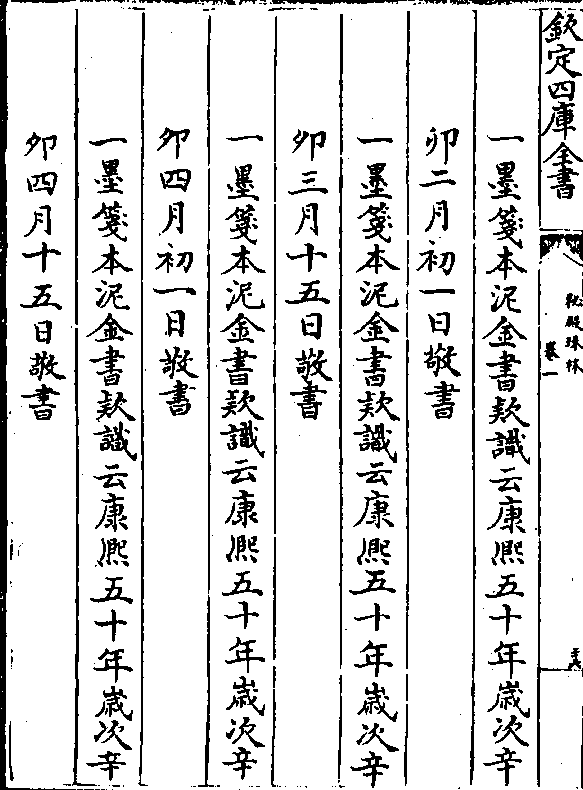 欽定四庫全書
秘殿珠林
卷一
一墨箋本泥金書款識云康熙五十年歲次辛
卯二月初一日敬書
一墨箋本泥金書款識云康熙五十年歲次辛
卯三月十五日敬書
一墨箋本泥金書款識云康熙五十年歲次辛
卯四月初一日敬書
一墨箋本泥金書款識云康熙五十年歲次辛
卯四月十五日敬書